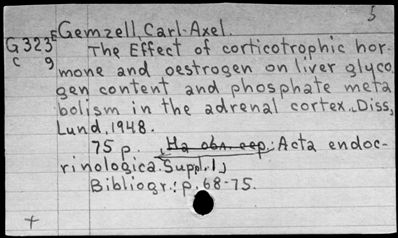 5
G323 E Gemzell, Carl-Axel.
c 9 The Effect of corticotrophic hor-
mone and oestrogen on liver glyco
gen content and phosphate meta
bolism in the adrenal cortex. Diss,
Lund, 1948.
75 p. На обл. сер.: Acta endoc-
rinologica. Suppl. 1
Bibliogr.: p. 68-75.
+